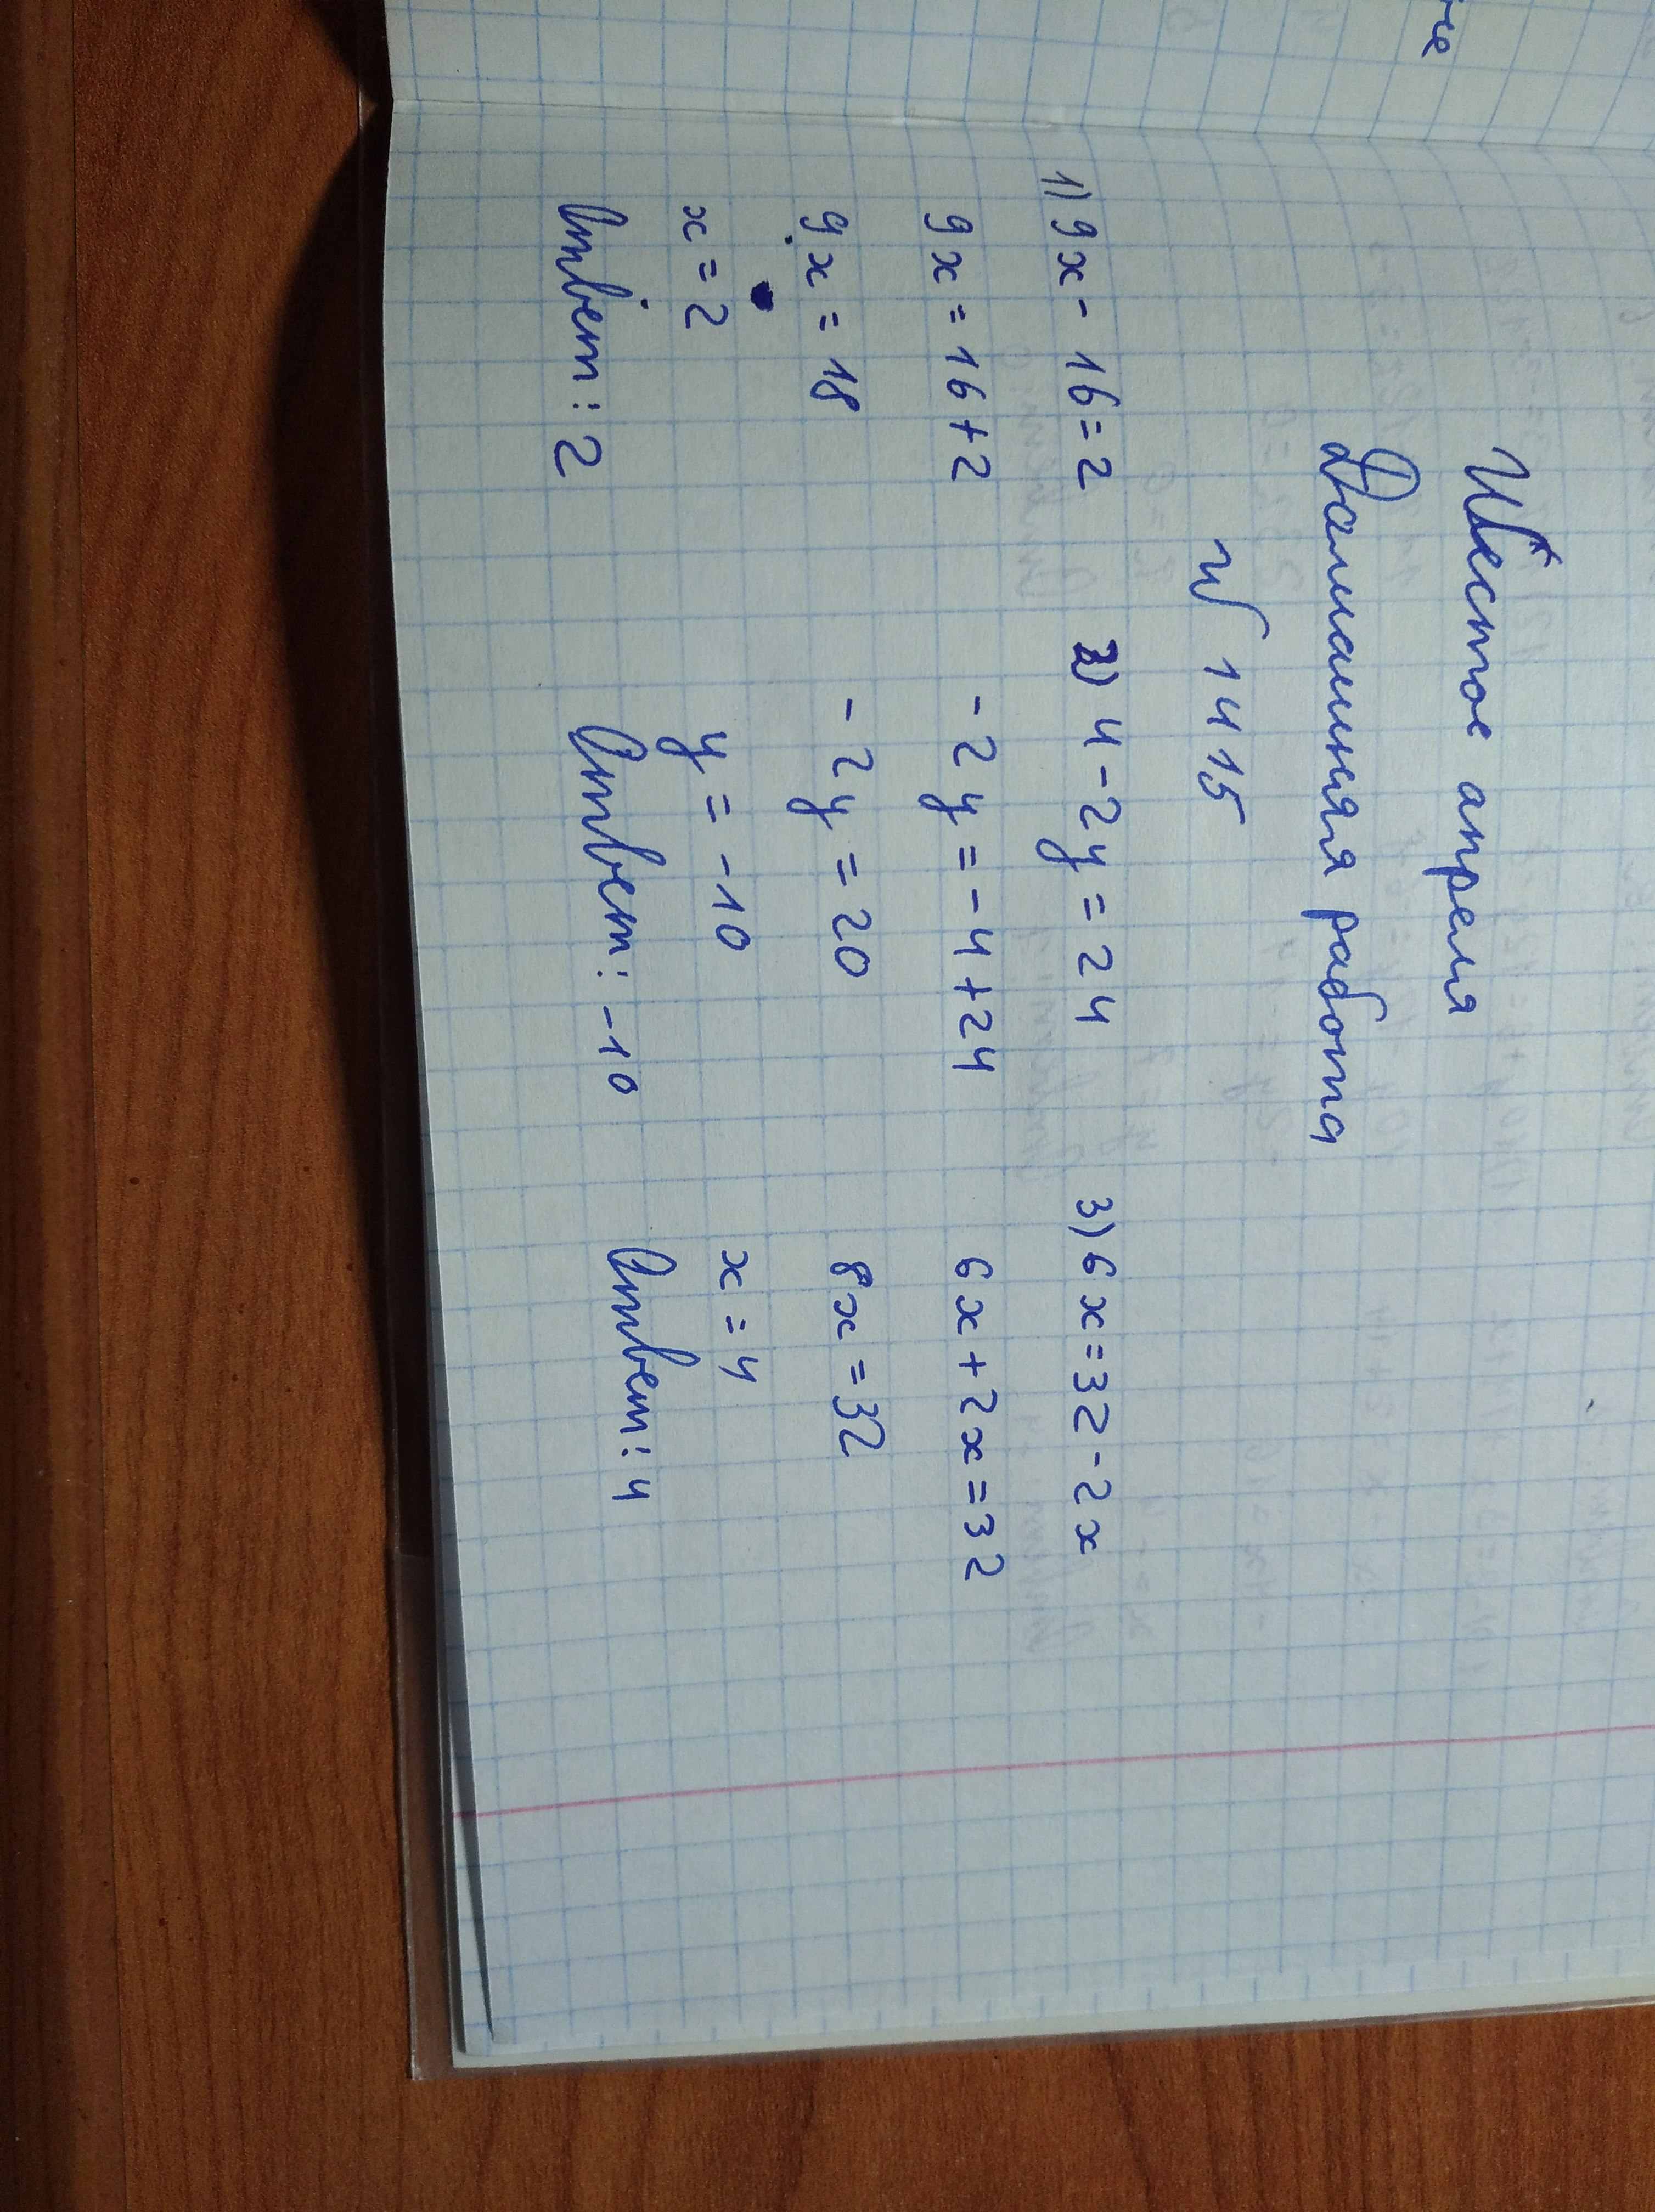 Шестое апреля
Домашняя работа
№ 1415
1) 9x - 16 = 2
9x = 16 + 2
9x = 18
x = 2
Ответ: 2
2) 4 - 2y = 24
- 2y = - 4 + 24
- 2y = 20
y = - 10
Ответ: - 10
3) 6x = 32 - 2x
6x + 2x = 32
8x = 32
x = 4
Ответ: 4